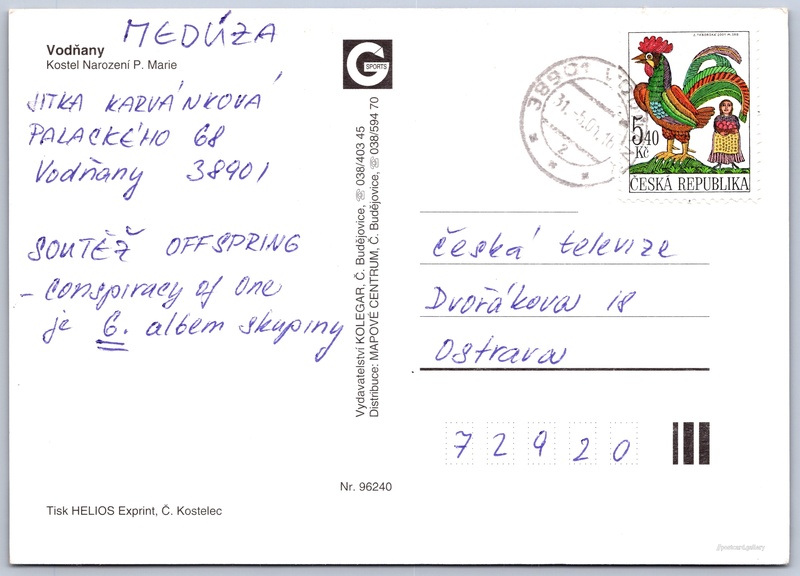 MEDÚZA
Vodňany
Kostel Narození P. Marie
JITKA KARVÁNKOVÁ
PALACKÉHO 68
Vodňany 38901
SOUTĚŽ OFFSPRING
- Conspiracy of One
je 6. albem skupiny
G SPORTS
Vydavatelství KOLEGAR, Č. Budějovice, ☏ 038/403 45
Distribuce: MAPOVÉ CENTRUM, Č. Budějovice, ☏ 038/594 70
Nr. 96240
Tisk HELIOS Exprint, Č. Kostelec
38901
5,40
Kč
ČESKÁ REPUBLIKA
Česká televize
Dvořákova 18
Ostrava
7 2 9 2 0
//postcard.gallery